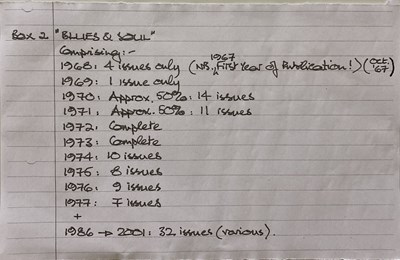 Box 2 "BLUES & SOUL"
Comprising:-
1968: 4 issues only (NB. 1967 First Year of Publication!) (Oct. '67)
1969: 1 issue only
1970: Approx. 50%: 14 issues
1971, Approx. 50%: 11 issues
1972: Complete
1973: Complete
1974: 10 issues
1975: 8 issues
1976: 9 issues
1977: 7 issues
+
1986 → 2001: 32 issues (various).